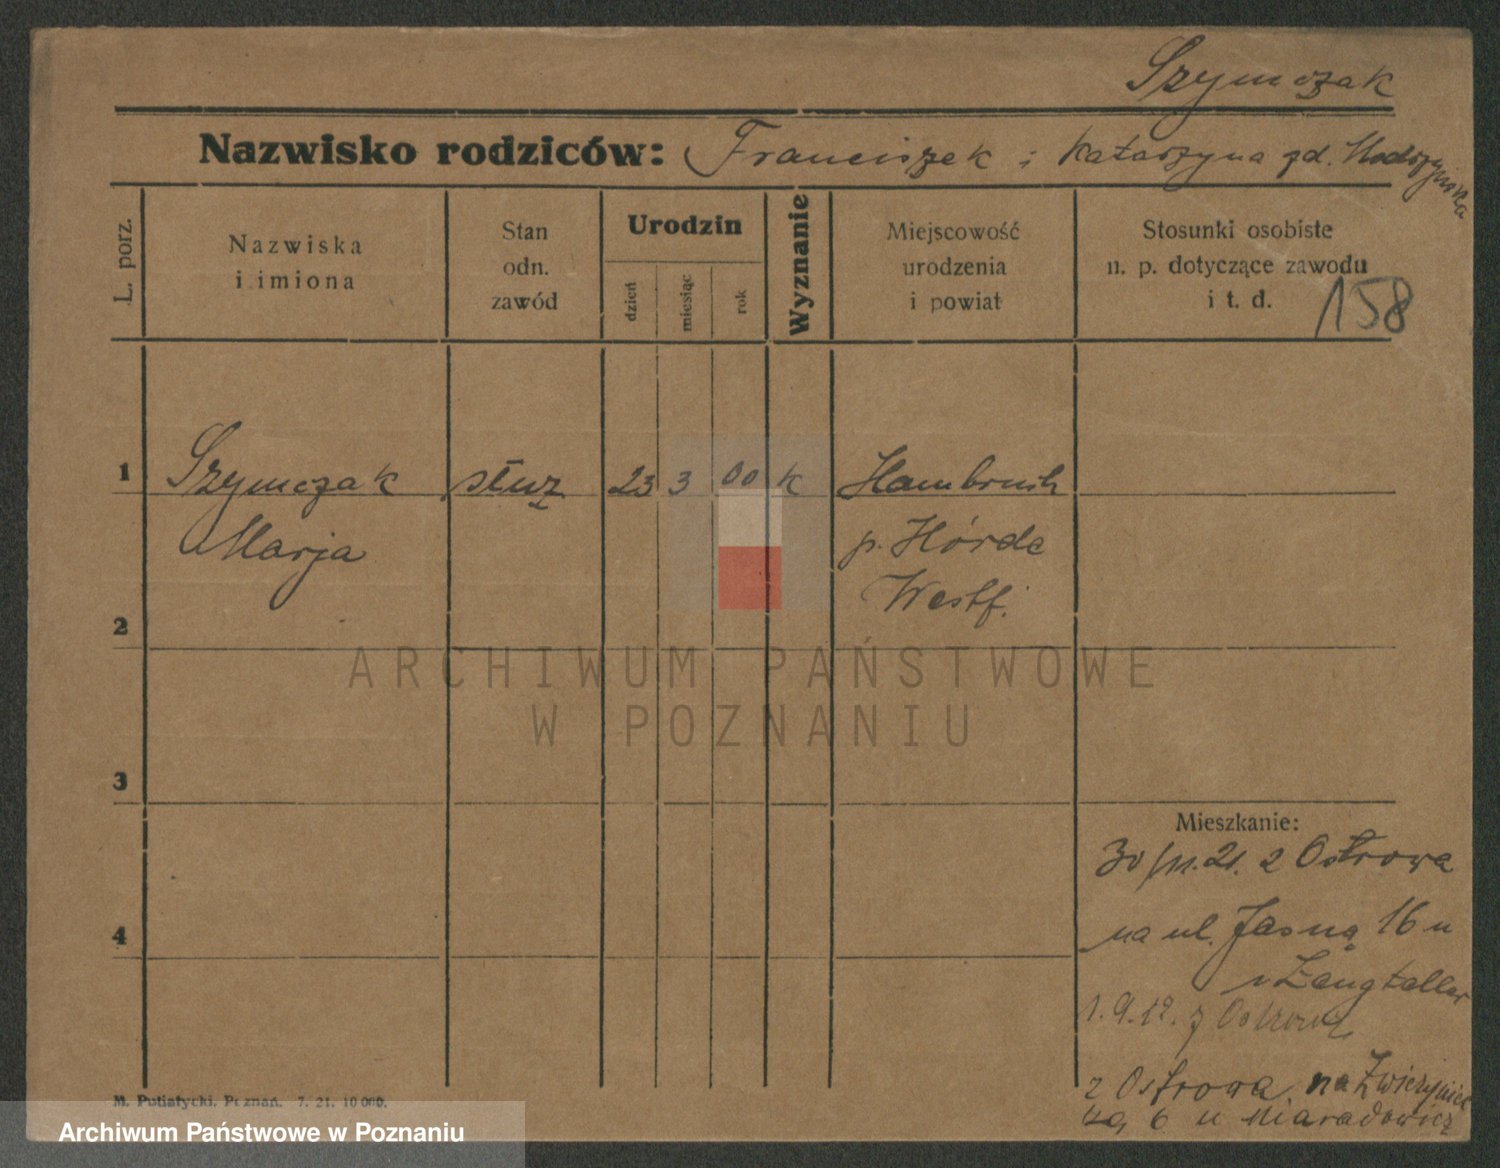 Szymczak
Nazwisko rodziców: Franciszek i Katarzyna zd.
L. porz.
Nazwiska
i imiona
Stan
odn.
zawód
Urodzin
dzień
miesiąc
rok
Wyznanie
Miejscowość
urodzenia
i powiat
Stosunki osobiste
n. p. dotyczące zawodu
i t. d.
158
1
Szymczak
Marja
służ
23 3 00 K
Hambruch
p. Hörde
Westf.
2
ARCHIWUM PAŃSTWOWE
W POZNANIU
3
4
Mieszkanie:
z Ostrowa
na ul. Jasną 16 u
z Ostrowa na
6 u
M. Putiatycki, Poznań. 7. 21. 10 000.
Archiwum Państwowe w Poznaniu